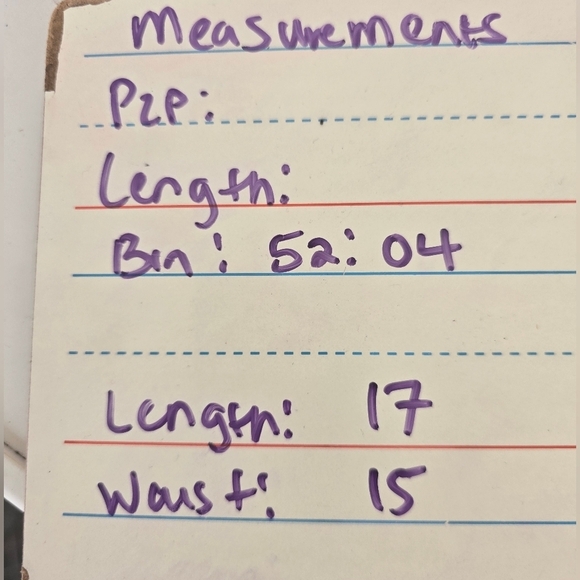 Measurements
P2P:
Length:
Bin: 52:04
Length: 17
Waist: 15